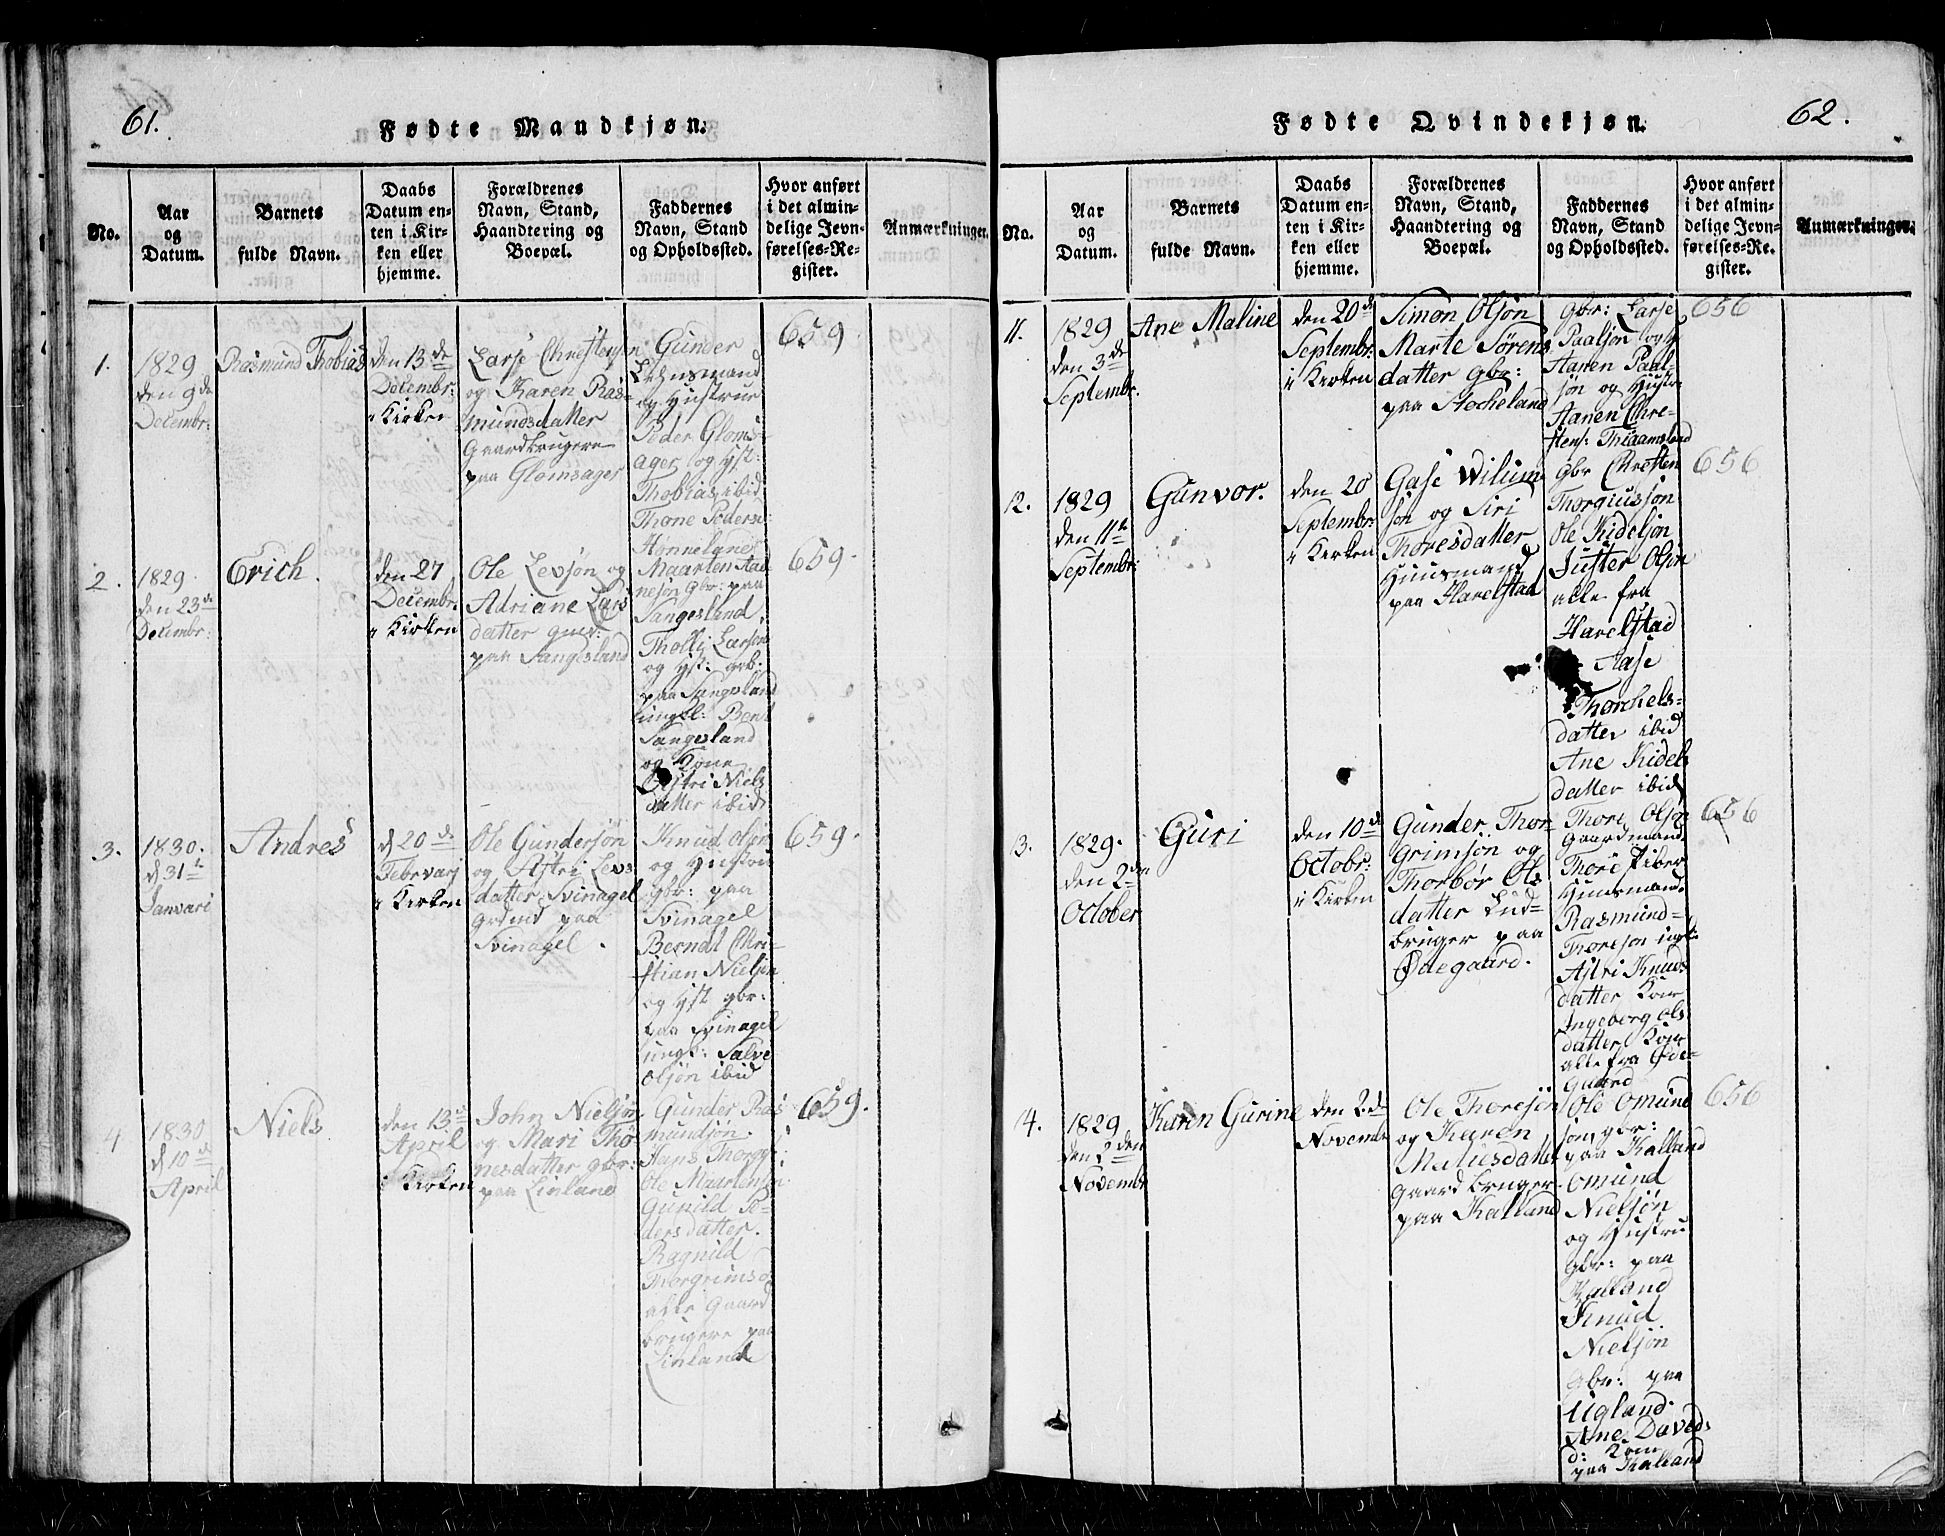 61.
Fødte Mandkjøn.
No.
Aar
og
Datum.
Barnets
fulde Navn.
Daabs
Datum en-
ten i Kir-
ken eller
hjemme.
Forældrenes
Navn, Stand,
Haandtering og
Boepæl.
Faddernes
Navn, Stand
og Opholdssted.
Hvor anført
i det almin-
delige Jevn-
førelses-Re-
gister.
Anmærkninger.
1.
1829
den 9de
Decembr:
Rasmund Thobias
den 13de
Decembr:
i Kirken
Larse Chrestensen
og Karen Ras-
mundsdatter
Gaardbrugere
paa Glomsager
Gunder
Lehnsmand
og Hustrue
Peder Gloms-
ager og Hst:
Thobias ibid
Thone Peders:
Honneland
659
2.
1829
den 23de
Decembr:
Erich.
den 27
Decembr.
i Kirken
Ole Levsøn og
Adriane Lars
datter
paa Sangesland
Maarten Aad-
nesøn Gbr: paa
Sangesland,
Tholli Larsen
og Hst: gb:
paa Sangesland
ungk: Bent
Sangesland
og Kone
Astri Niels
datter ibid
659.
3.
1830.
d 31te
Januari
Andres
d 20de
Februari
i Kirken
Ole Gundersøn
og Astri Levs
datter Svinagel
paa
Svinagel.
Knud Olsøn
og Hustru
gbr: paa
Svinagel
Berndt Chri-
stian Nielsen
og Hst gbr:
paa Svinagel
ungk: Salve
Olsøn ibid
659.
4
1830
d 10de
April
Niels
den 13de
April
i Kirken
John Nielsøn
og Mari Thø
nesdatter gbr:
paa Linland
Gunder Ras
mundsøn.
Hans Thorgr:
Ole Maartensøn
Gunild Pe-
dersdatter.
Ragnild
Thorgrimsd
alle Gaard
brugere paa
Linland
659.
62.
Fødte Qvindekjøn.
No.
Aar
og
Datum.
Barnets
fulde Navn.
Daabs
Datum en-
ten i Kir-
ken eller
hjemme.
Forældrenes
Navn, Stand,
Haandtering og
Boepæl.
Faddernes
Navn, Stand
og Opholdssted.
Hvor anført
i det almin-
delige Jevn-
førelses-Re-
gister.
Anmærkninger.
11.
1829
den 3de
Septembr.
Ane Maline
den 20de
Septembr.
i Kirken
Simon Olsøn
Marte Sørens
datter gbr:
paa Stocheland
Gbr: Larse
Paalsøn og
Aanen Paal-
søn og Hustr
Aanen Chre-
stens: Thraamsland
656
12.
1829
den 11te
Septembr:
Gunvor.
den 20
Septembr.
i Kirken
Gase Wilum
søn og Siri
Thoresdatter
Huusmand
paa Harelstad
Gbr Chresten
Thorgiussøn
Ole Kidelsøn
Juster Olsøn
alle fra
Harelstad
Aase
Thorchels-
datter ibid
Ane Kidels
datter ibid
656
3.
1829.
den 2den
October
Guri
den 10de
Octobr:
i Kirken
Gunder Thor-
Grimsøn og
Thorbør Ols
datter Lud-
bruger paa
Ødegaard.
Thore Olsøn
Gaardmand.
Thore Piber
Huusmand.
Rasmund
Thoresøn ungk:
Astri Knuds
datter
Ingeborg Ols
datter
alle fra Øde-
Guard
656
4.
1829
den 2den
Novembr
Karen Gurine
den 2de
Novembr
Ole Thoresøn
og Karen
Matiesdatter
Gaardbruger
paa Kalland
Ole Omund
søn gbr:
paa Kalland
Omund
Nielsøn
og Hustru
gbr: paa
Kalland
Knud
Nielsøn
gbr: paa
Ugland.
Ane Davids
d:
paa Kalland
656